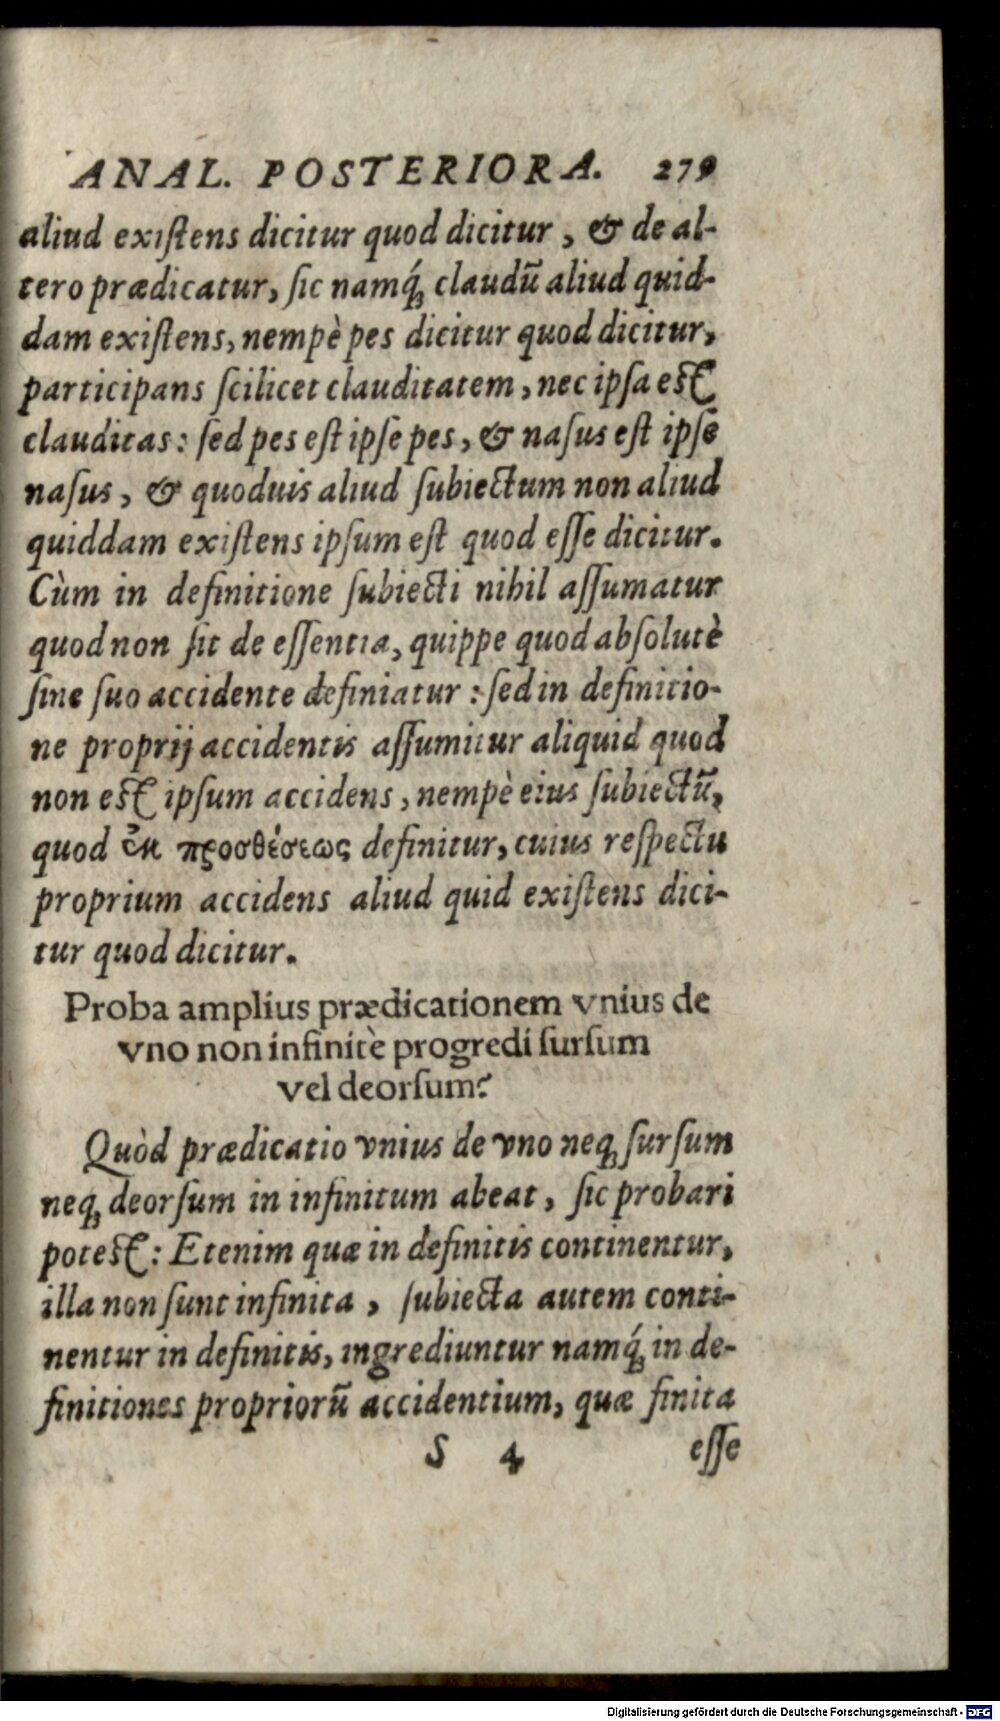 ANAL. POSTERIORA. 279
aliud exiſtens dicitur quod dicitur, & de al-
tero prædicatur, ſic namq́; claudũ aliud quid-
dam exiſtens, nempè pes dicitur quod dicitur,
participans ſcilicet clauditatem, nec ipſa eſt
clauditas: ſed pes eſt ipſe pes, & naſus eſt ipſe
naſus, & quoduis aliud ſubiectum non aliud
quiddam exiſtens ipſum eſt quod eſſe dicitur.
Cùm in definitione ſubiecti nihil aſſumatur
quod non ſit de eſſentia, quippe quod abſolutè
ſine ſuo accidente definiatur: ſed in definitio-
ne proprij accidentis aſſumitur aliquid quod
non eſt ipſum accidens, nempè eius ſubiectũ,
quod ἐκ προσθέσεως definitur, cuius reſpectu
proprium accidens aliud quid exiſtens dici-
tur quod dicitur.
Proba amplius prædicationem vnius de
vno non infinitè progredi ſurſum
vel deorſum?
Quòd prædicatio vnius de vno neq; ſurſum
neq; deorſum in infinitum abeat, ſic probari
poteſt: Etenim quæ in definitis continentur,
illa non ſunt infinita, ſubiecta autem conti-
nentur in definitis, ingrediuntur namq́; in de-
finitiones propriorũ accidentium, quæ finita
S 4 eſſe
Digitalisierung gefördert durch die Deutsche Forschungsgemeinschaft - DFG